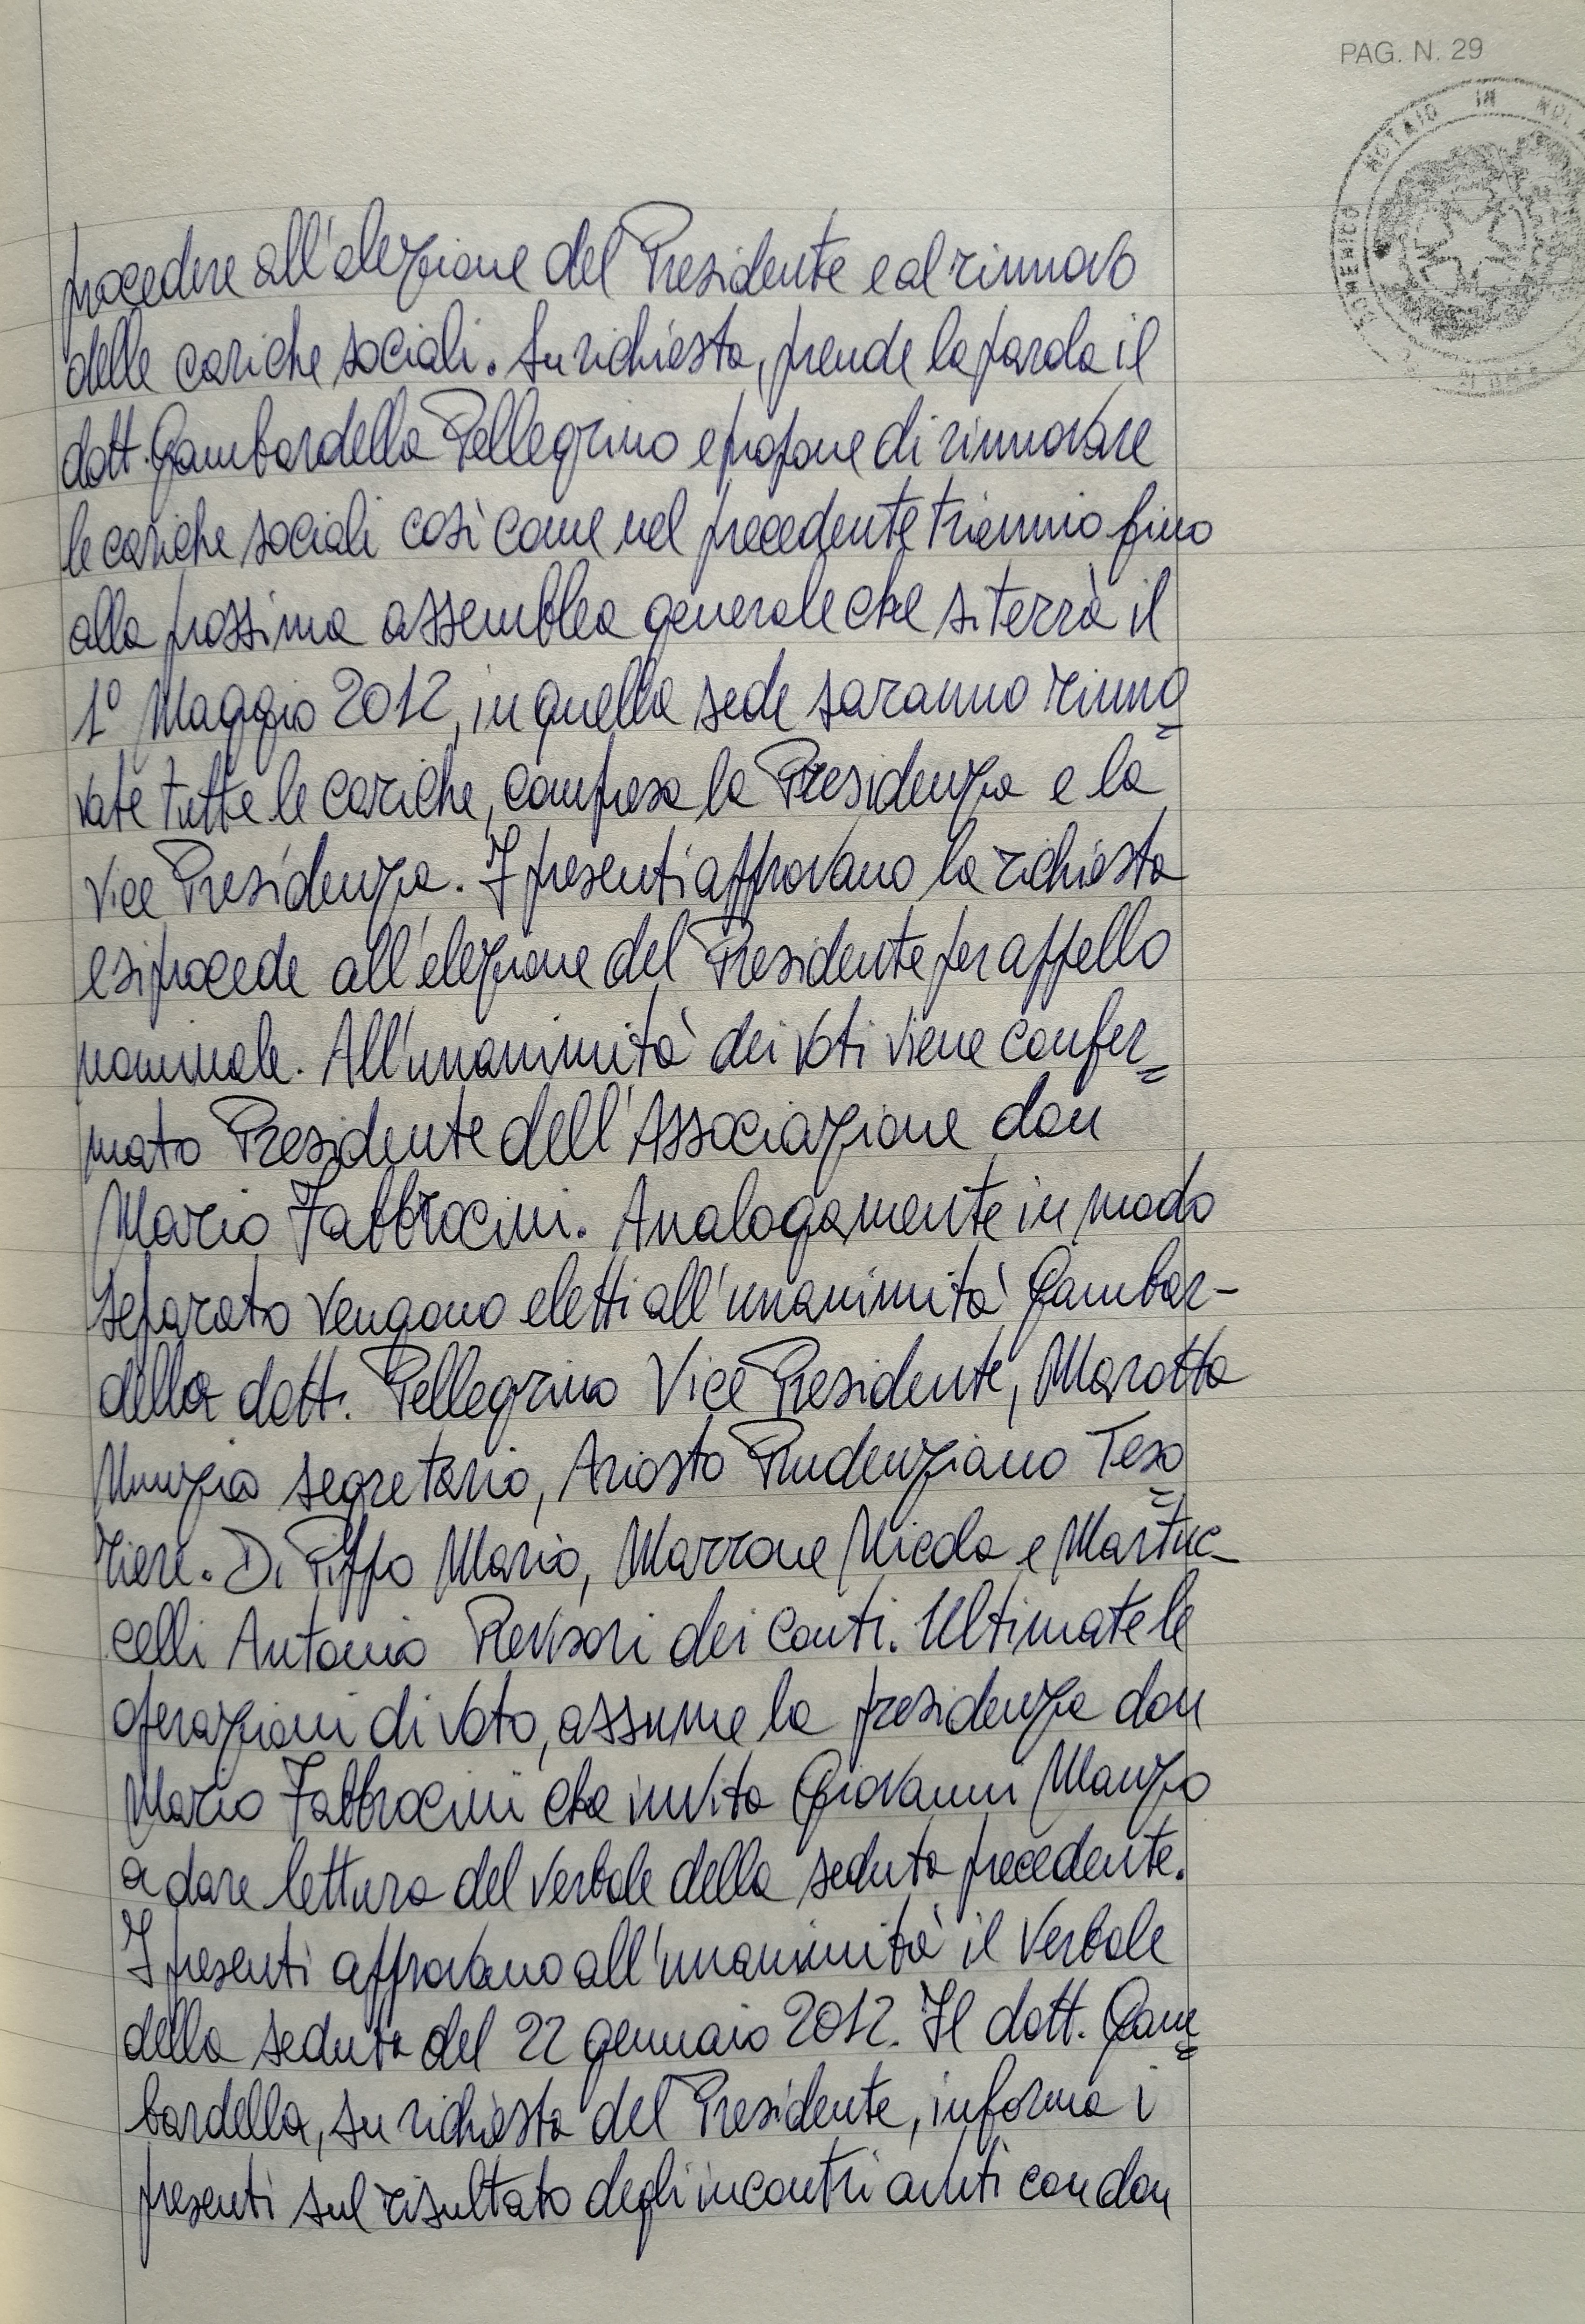 PAG. N. 29
NOTAIO IN NOLA
procedere all'elezione del Presidente e al rinnovo
delle cariche sociali. Su richiesta, prende la parola il
dott. Gambardella Pellegrino e propone di rinnovare
le cariche sociali così come nel precedente triennio fino
alla prossima assemblea generale che si terrà il
1° Maggio 2012, in quella sede saranno rinno=
vate tutte le cariche, compresa la Presidenza e la
Vice Presidenza. I presenti approvano la richiesta
e si procede all'elezione del Presidente per appello
nominale. All'unanimità dei voti viene confer=
mato Presidente dell'Associazione don
Mario Fabbrocini. Analogamente in modo
separato vengono eletti all'unanimità Gambar-
della dott. Pellegrino Vice Presidente, Marotta
Nunzia segretario, Ariosto Prudenziano Teso=
riere. Di Piffo Mario, Marrone Nicola e Martuc-
celli Antonio Revisori dei Conti. Ultimate le
operazioni di voto, assume la presidenza don
Mario Fabbrocini che invita Giovanni Manzo
a dare lettura del verbale della seduta precedente.
I presenti approvano all'unanimità il verbale
della seduta del 22 gennaio 2012. Il dott. Gam=
bardella, su richiesta del Presidente, informa i
presenti sul risultato degli incontri avuti con don